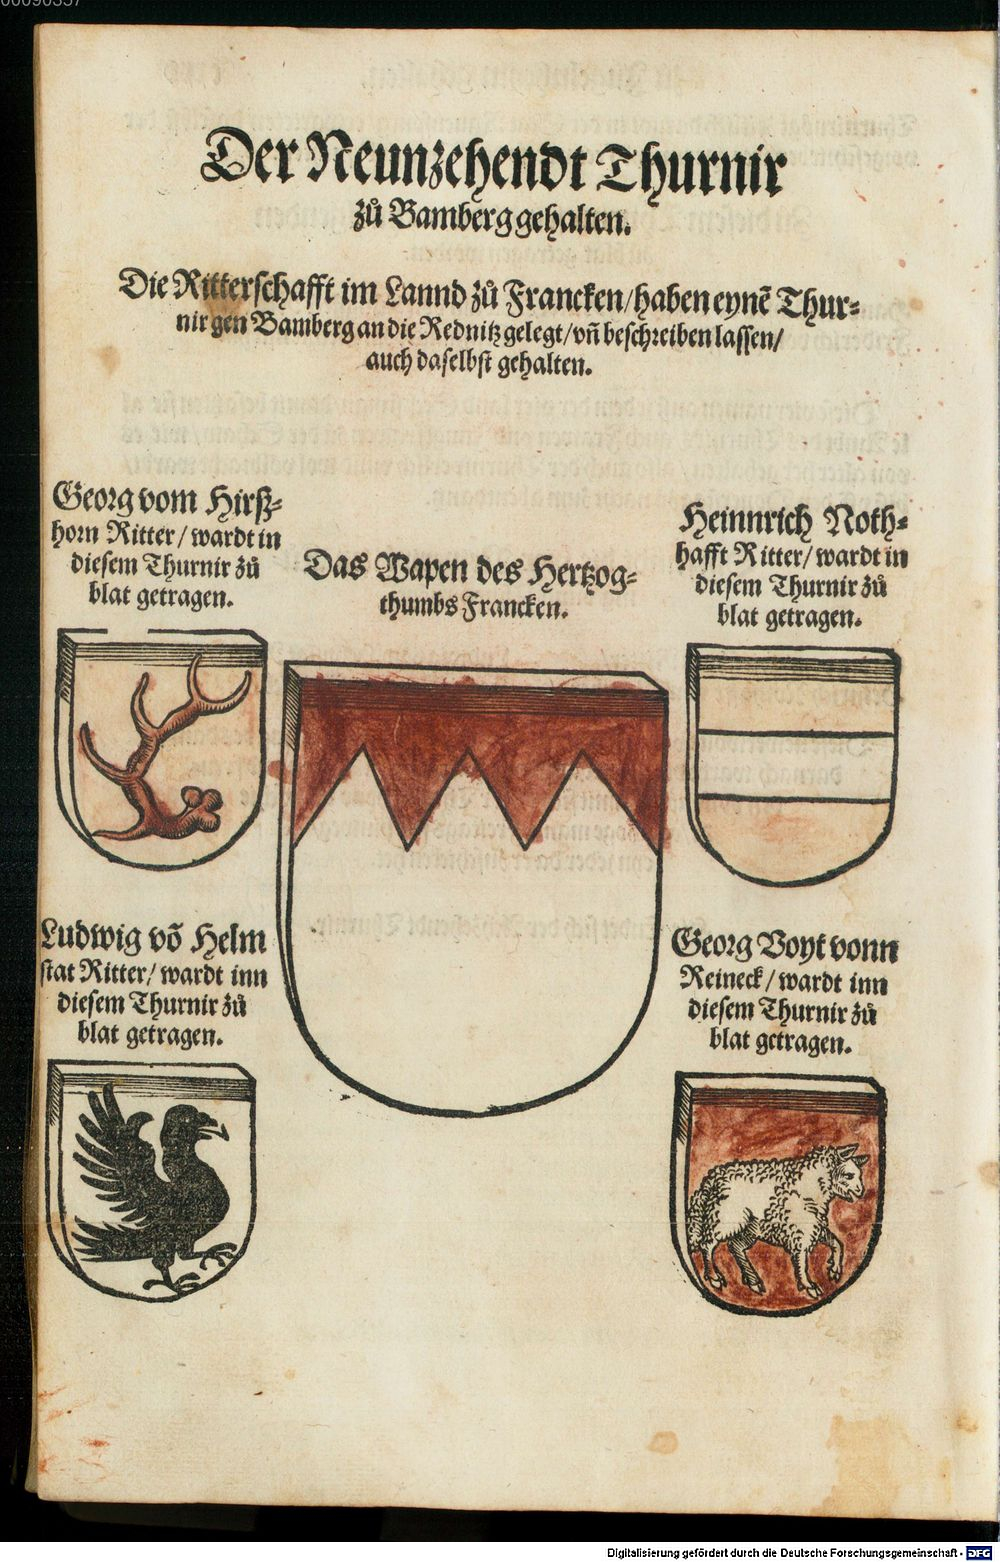 Der Neunzehendt Thurnir
zů Bamberg gehalten.
Die Ritterschafft im Lannd zů Francken/ haben eynē Thur=
nir gen Bamberg an die Rednitz gelegt/ vñ beschreiben lassen/
auch daselbst gehalten.
Georg vom Hirß=
horn Ritter/ wardt in
diesem Thurnir zů
blat getragen.
Das Wapen des Hertzog=
thumbs Francken.
Heinnrich Noth=
hafft Ritter/ wardt in
diesem Thurnir zů
blat getragen.
Ludwig vō Helm
stat Ritter/ wardt inn
diesem Thurnir zů
blat getragen.
Georg Voyt vonn
Reineck/ wardt inn
diesem Thurnir zů
blat getragen.
Digitalisierung gefördert durch die Deutsche Forschungsgemeinschaft - DFG